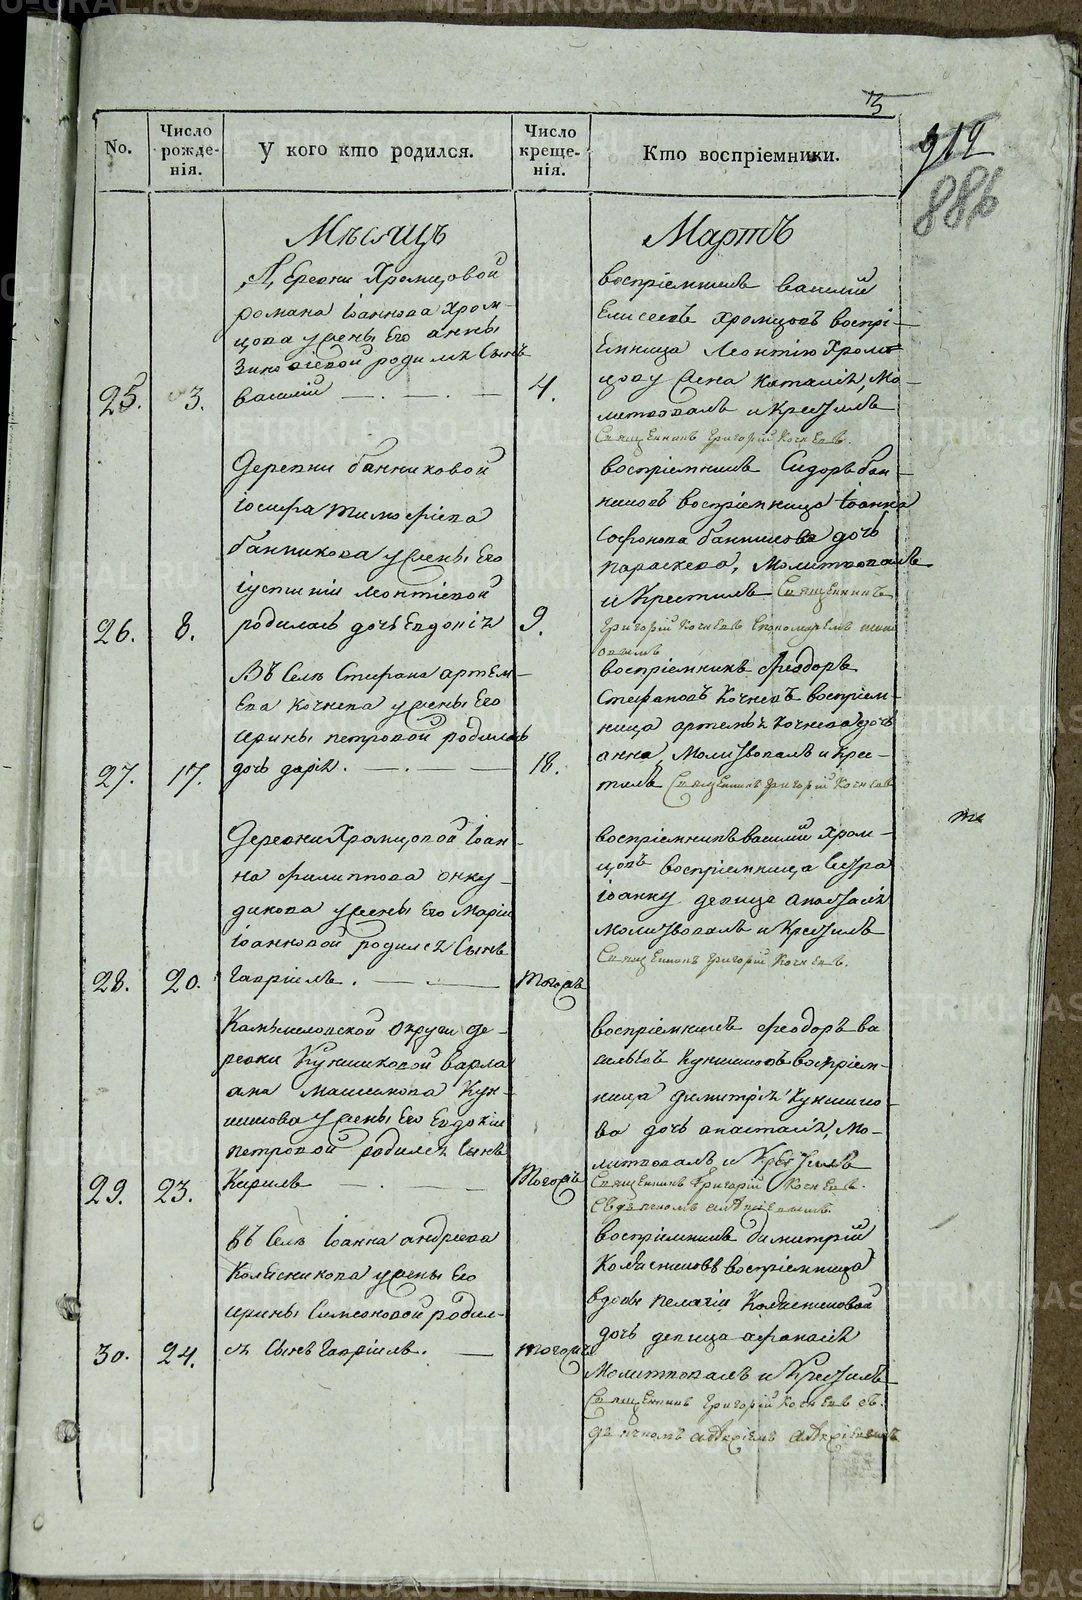 3
912
886
No.
Число рожде-нія.
У кого кто родился.
Число креще-нія.
Кто воспріемники.
Мѣсяцъ
Мартъ
Деревни Хромцовой
романа Іоаннова Хром-
цова у жены Его анны
родился Сынъ
25. 3. василій 4.
воспріемникъ василій
Елисеевъ Хромцовъ воспрі-
Емница Леонтію Хром-
цову жена наталія, Мо-
литвовалъ и Крестилъ
Священникъ Григорій Кочневъ.
Деревни банниковой
Іосифа тимофіева
банникова у жены Его
Іустиніи Леонтіевой
26. 8. родилась дочь Евдокія 9.
воспріемникъ Сидоръ бан-
никовъ воспріемница Іоанна
Софонова банникова дочь
параскева, Молитвовалъ
и Крестилъ Священникъ
Григорій Кочневъ
Въ Селѣ Стефана артем-
Ева Кочнева у жены Его
ирины петровой родилась
27. 17. дочь дарія. 18.
воспріемникъ феодоръ
Стефановъ Кочневъ воспріем-
ница артемія Кочнева дочь
анна, Молитвовалъ и Крес-
тилъ Священникъ Григорій Кочневъ
Деревни Хромцовой Іоан-
на филиппова
у жены Его Маріи
Іоанновой родился Сынъ
28. 20. Гавріилъ. тогожъ
воспріемникъ василій Хром-
цовъ воспріемница
Іоанну девица анастасія
молитвовалъ и Крестилъ
Священникъ Григорій Кочневъ.
Камышловской округи де-
ревни Кукшиковой варла
ама
у жены Его Евдокіи
петровой родился Сынъ
29. 23. Кирилъ тогожъ
воспріемникъ феодоръ ва
сильевъ воспріем-
ница димитрія
ва дочь анастасія, Мо-
литвовалъ и Крестилъ
Священникъ Григорій Кочневъ.
Въ Селѣ Іоанна андреева
Колясникова у жены Его
ирины Симеоновой родил-
30. 24. ся Сынъ Гавріилъ. тогожъ
воспріемникъ димитрій
Колясниковъ воспріемница
вдовы пелагіи Колясниковой
дочь девица афанасія
Молитвовалъ и Крестилъ
Священникъ Григорій Кочневъ съ
METRIKI.GASO-URAL.RU